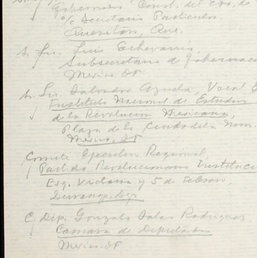 Gobernador Const. del Edo. de
c/o Secretario Particular
Querétaro, Qro.
Sr. Lic. Luis Echeverría,
Subsecretario de Gobernación
México DF
Sr. Lic. Salvador Azuela, Vocal
Instituto Nacional de Estudios
de la Revolución Mexicana
Plaza de la Ciudadela Num
México, DF
Comité Ejecutivo Regional,
Partido Revolucionario Institucional
Esq. Victoria y 5 de Febrero,
Durango, Dgo.
C. Dip. Gonzalo Salas Rodríguez
Camara de Diputados
México DF